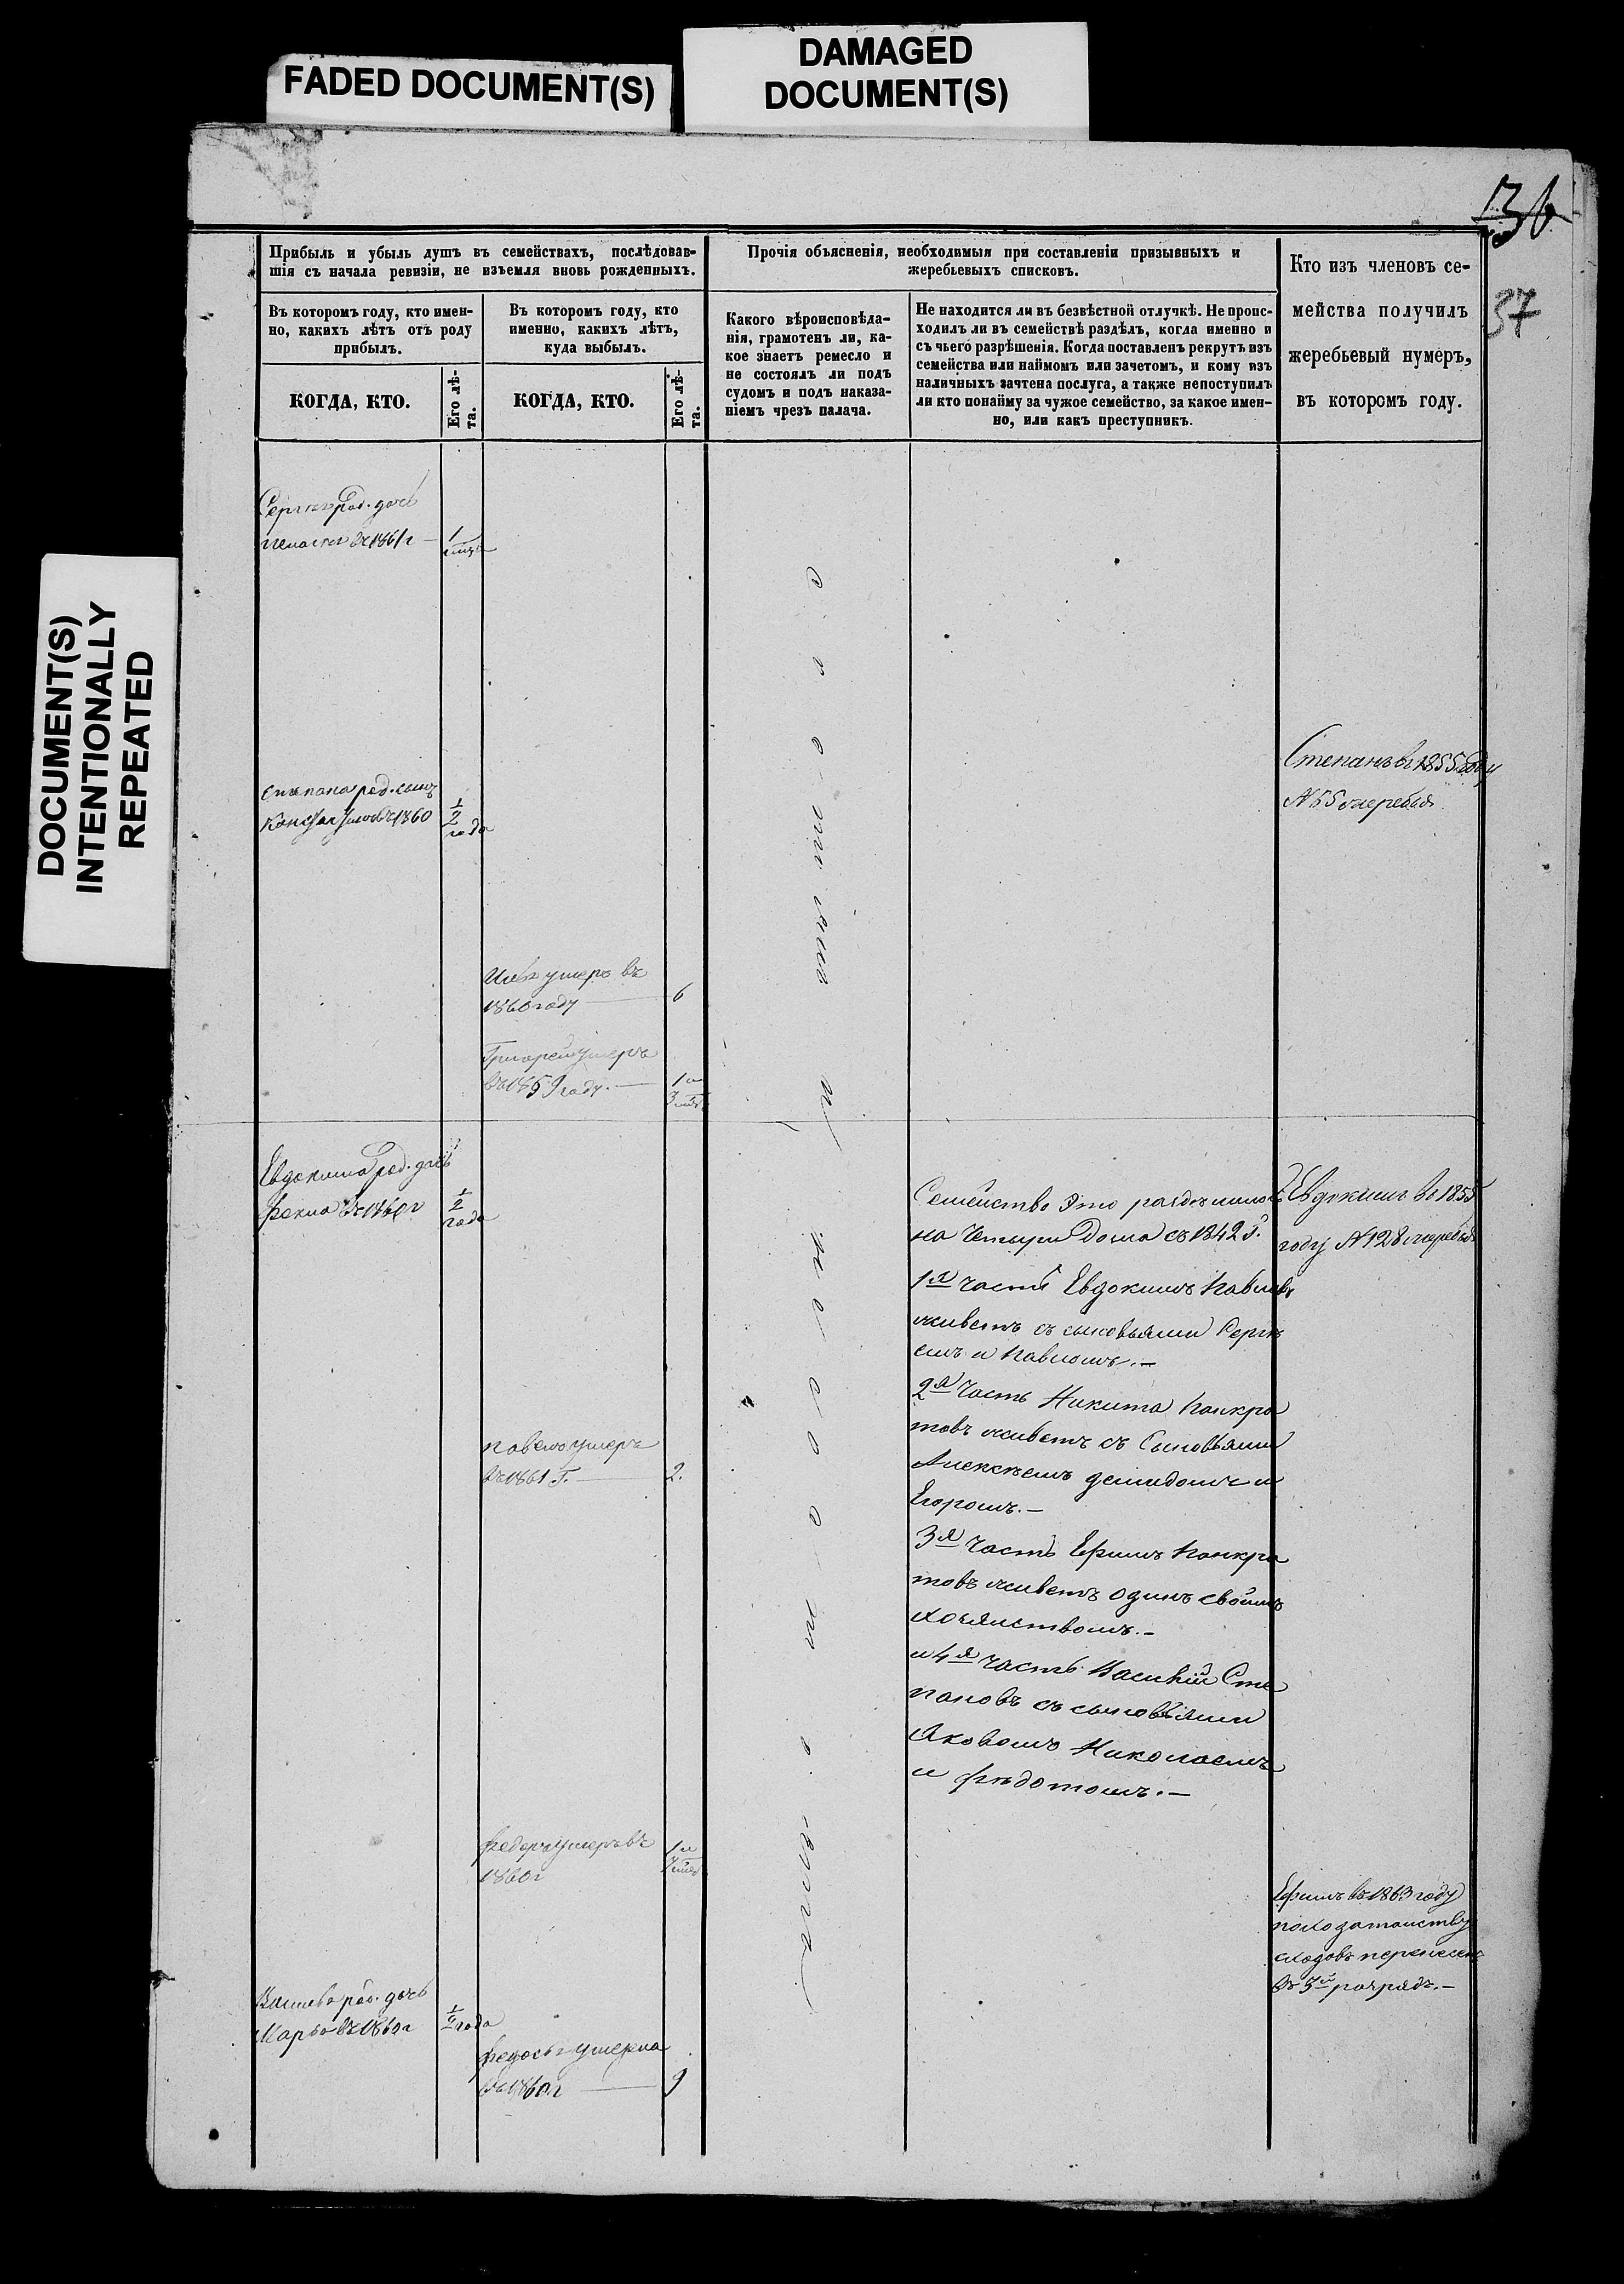 FADED DOCUMENT(S)
DAMAGED
DOCUMENT(S)
DOCUMENT(S)
INTENTIONALLY
REPEATED
37
Прибыль и убыль душъ въ семействахъ, послѣдовав-
шія съ начала ревизіи, не изъемля вновь рожденныхъ.
Въ которомъ году, кто имен-
но, какихъ лѣтъ отъ роду
прибылъ.
Въ которомъ году, кто
именно, какихъ лѣтъ,
куда выбылъ.
КОГДА, КТО.
Его лѣ-
та.
КОГДА, КТО.
Его лѣ-
та.
Прочія объясненія, необходимыя при составленіи призывныхъ и
жеребьевыхъ списковъ.
Какого вѣроисповѣда-
нія, грамотенъ ли, ка-
кое знаетъ ремесло и
не состоялъ ли подъ
судомъ и подъ наказа-
ніемъ чрезъ палача.
Не находится ли въ безвѣстной отлучкѣ. Не проис-
ходилъ ли въ семействѣ раздѣлъ, когда именно и
съ чьего разрѣшенія. Когда поставленъ рекрутъ изъ
семейства или наймомъ или зачетомъ, и кому изъ
наличныхъ зачтена послуга, а также непоступилъ
ли кто понайму за чужое семейство, за какое имен-
но, или какъ преступникъ.
Кто изъ членовъ се-
мейства получилъ
жеребьевый нумеръ,
въ которомъ году.
род. дочь
въ 1861 г — 1
Степана род. сынъ
въ 1860 1/2
года
Степанъ въ 1855 году
№ 55 жеребья
умеръ въ
1860 году — 6
Григорей умеръ
въ 1859 году. — 1 и
3
Евдокима род. дочь
Фекла въ 1860 г 1/2
года
Семейство Это раздѣлилось
на Четыри Дома съ 1842 Г.
1я часть Евдокимъ Павловъ
живетъ съ сыновьями Сергѣ
емъ и Павломъ. —
2я Часть Никита Панкра
товъ живетъ съ Сыновьями
Алексѣемъ Демидомъ и
Егоромъ. —
3я Часть Ефимъ Панкра
товъ живетъ одинъ своимъ
хозяйствомъ. —
и 4я Часть Василій Сте
пановъ съ сыновьями
Яковомъ Николаемъ
и Фѣдотомъ. —
Евдокимъ въ 1855
году № 128 жеребья
Павелъ умеръ
въ 1861 Г. — 2.
Федоръ умеръ въ
1860 г 1 и
Ефимъ въ 1863 году
по ходатайству
перенесенъ
въ 3й разрядъ. —
род. дочь
Марья въ 1860 г 1/2 года
Федосья умерла
въ 1860 г — 9